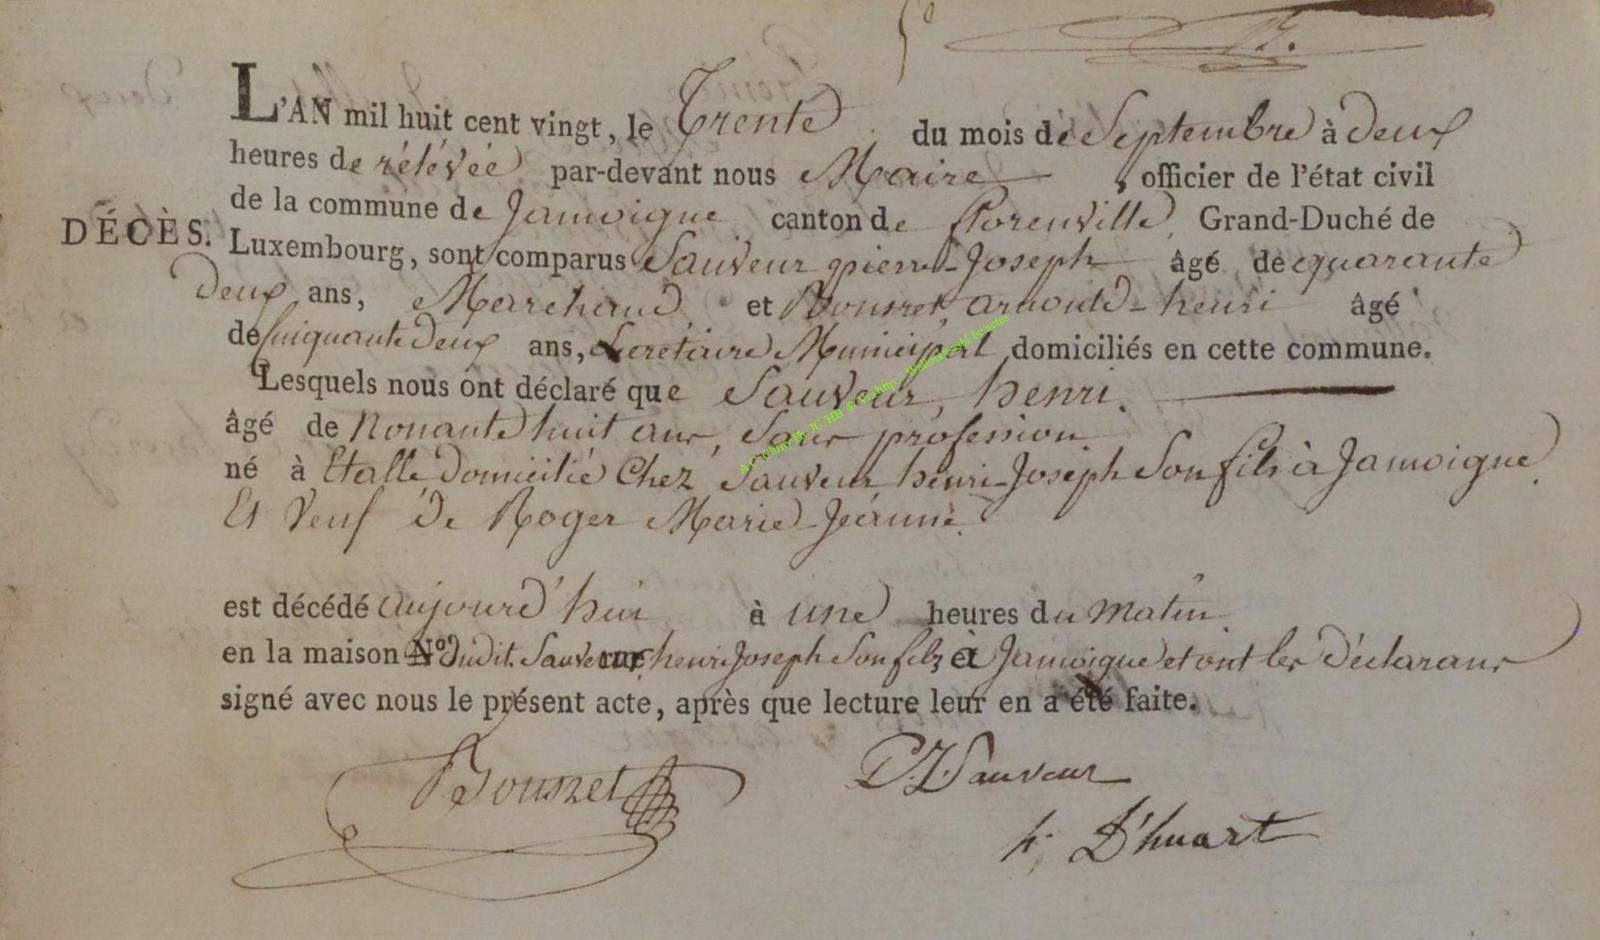 5e
L'AN mil huit cent vingt, le Trente du mois de Septembre à deux
heures de rélévée par-devant nous Maire, officier de l'état civil
de la commune de Jamoigne canton de florenville, Grand-Duché de
DÉCÈS. Luxembourg, sont comparus Sauveur pierre-Joseph âgé de quarante
deux ans, Marchand et arnould-henri âgé
de Cinquante deux ans, Secretaire Municipal domiciliés en cette commune.
Lesquels nous ont déclaré que Sauveur, henri.
âgé de Nonante huit ans, Sans profession
né à Etalle domicilié Chez Sauveur henri-Joseph Son fils à Jamoigne.
Et Veuf de Roger Marie-Jeanne.
est décédé aujourd'hui à une heures du matin
en la maison N.o dudit Sauveur henri Joseph Son fils à Jamoigne et ont les déclarans
signé avec nous le présent acte, après que lecture leur en a été faite.
P.J. Sauveur
h. D'huart